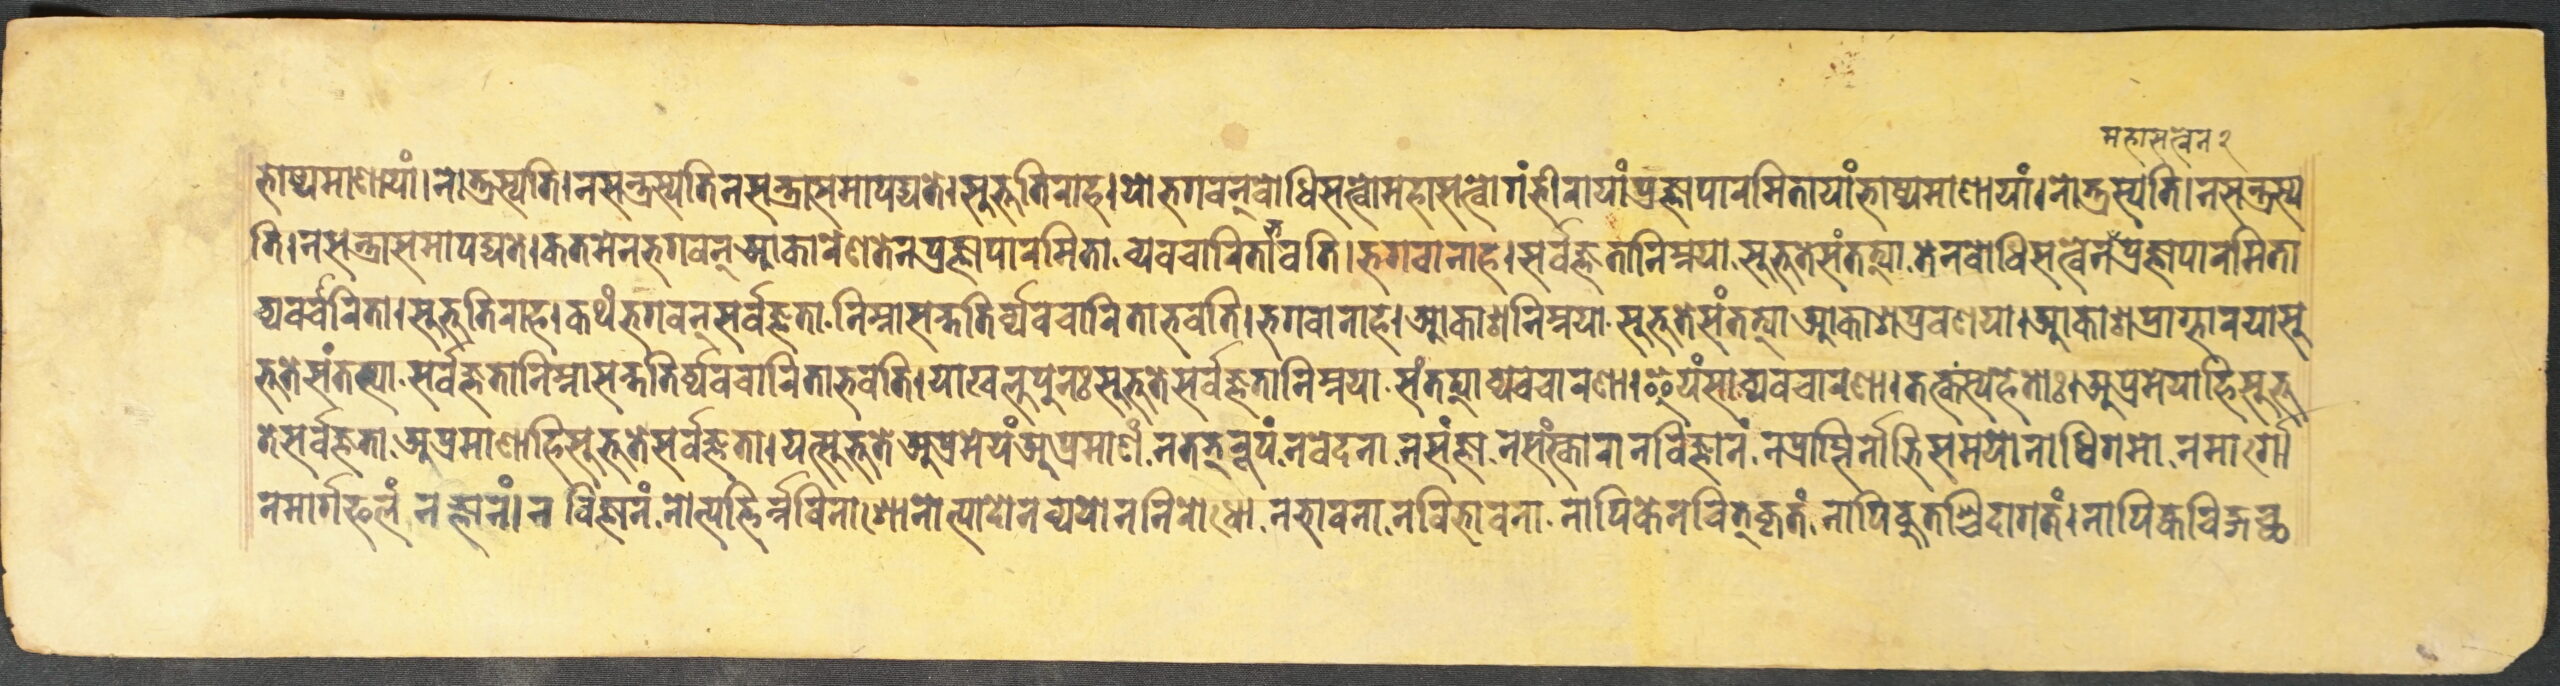 महासत्त्वेन २
भाष्यमाणायां।नोत्त्रस्यति।नसन्त्रस्यतिनसन्त्रासमापद्यते।सुभूतिराह।योभगवन्बोधिसत्वोमहासत्वोगंभीरायांप्रज्ञापारमितायांभाष्यमाणायां।नोत्त्रस्यति।नसन्त्रस्य
ति।नसन्त्रासमापद्यते।कतमेनभगवन्आकारेणतेनप्रज्ञापारमिता व्यवचारिताभवति।भगवानाह।सर्वज्ञतानिम्नया सुभूतेसंतत्या तेनबोधिसत्वेनप्रज्ञापारमिता
व्यवचरिता।सुभूतिराह।कथंभगवन्सर्वज्ञता निम्नासन्ततिर्व्यवचारिताभवति।भगवानाह।आकाशनिम्नया सुभूतेसंतत्या आकाशप्रवणया।आकाशप्राग्भारयासु
भूतेसंतत्या सर्वज्ञतानिम्नासन्ततिर्व्यवचारिताभवति।याखलुपुनःसुभूतेसर्वज्ञतानिम्नया संतत्या व्यवचारणा।इयंसाव्यवचारणा।तत्कस्यहेतोः।अप्रमेयाहिसुभू
तेसर्वज्ञता अप्रमाणाहिसुभूतेसर्वज्ञता।यत्सुभूतेअप्रमेयंअप्रमाणं नतत्रूपं नवेदना नसंज्ञा नसंस्कारानविज्ञानं नप्राप्तिर्नाभिसमयोनाधिगमो नमार्गो
नमार्गफलं नज्ञानं।न विज्ञानं नोत्पत्तिर्न्नविनाशोनोत्पादोनव्ययोननिरोधो नभावना नविभावना नापिकेनचित्कृतं नापिकुतश्चिदागतं।नापिक्वचिद्गच्छ